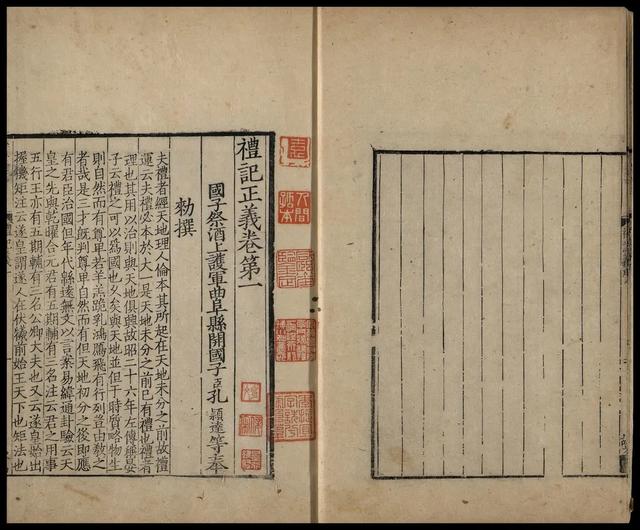 禮記正義卷第一
國子祭酒上護軍曲阜縣開國子臣孔穎達等奉
勑撰
夫禮者經天地理人倫本其所起在天地未分之前故禮
運云夫禮必本於大一是天地未分之前已有禮也禮者
理也其用以治則與天地俱興故昭二十六年左傳稱晏
子云禮之可以爲國也久矣與天地並但于時質略物生
則自然而有尊卑若羊羔跪乳鴻鴈飛有行列豈由教之
者哉是三才既判尊卑自然而有但天地初分之後即應
有君臣治國但年代縣遠無文以言案易緯通卦驗云天
皇之先與乾曜合元君有五期輔有三名注云君之用事
五行王亦有五期輔有三名公卿大夫也又云遂皇始出
握機矩注云遂皇謂遂人在伏犧前始王天下也矩法也
人間孤本